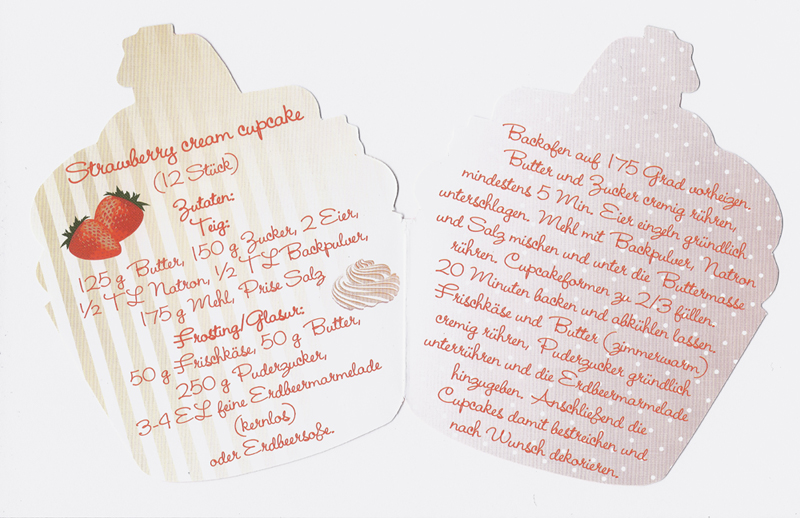 Strawberry cream cupcake
(12 Stück)
Zutaten:
Teig:
125 g Butter, 150 g Zucker, 2 Eier,
1/2 TL Natron, 1/2 TL Backpulver,
175 g Mehl, Prise Salz
Frosting/Glasur:
50 g Frischkäse, 50 g Butter,
250 g Puderzucker,
3-4 EL feine Erdbeermarmelade
(kernlos)
oder Erdbeersoße.
Backofen auf 175 Grad vorheizen.
Butter und Zucker cremig rühren,
mindestens 5 Min. Eier einzeln gründlich
unterschlagen. Mehl mit Backpulver, Natron
und Salz mischen und unter die Buttermasse
rühren. Cupcakeformen zu 2/3 füllen.
20 Minuten backen und abkühlen lassen.
Frischkäse und Butter (zimmerwarm)
cremig rühren, Puderzucker gründlich
unterrühren und die Erdbeermarmelade
hinzugeben. Anschließend die
Cupcakes damit bestreichen und
nach Wunsch dekorieren.